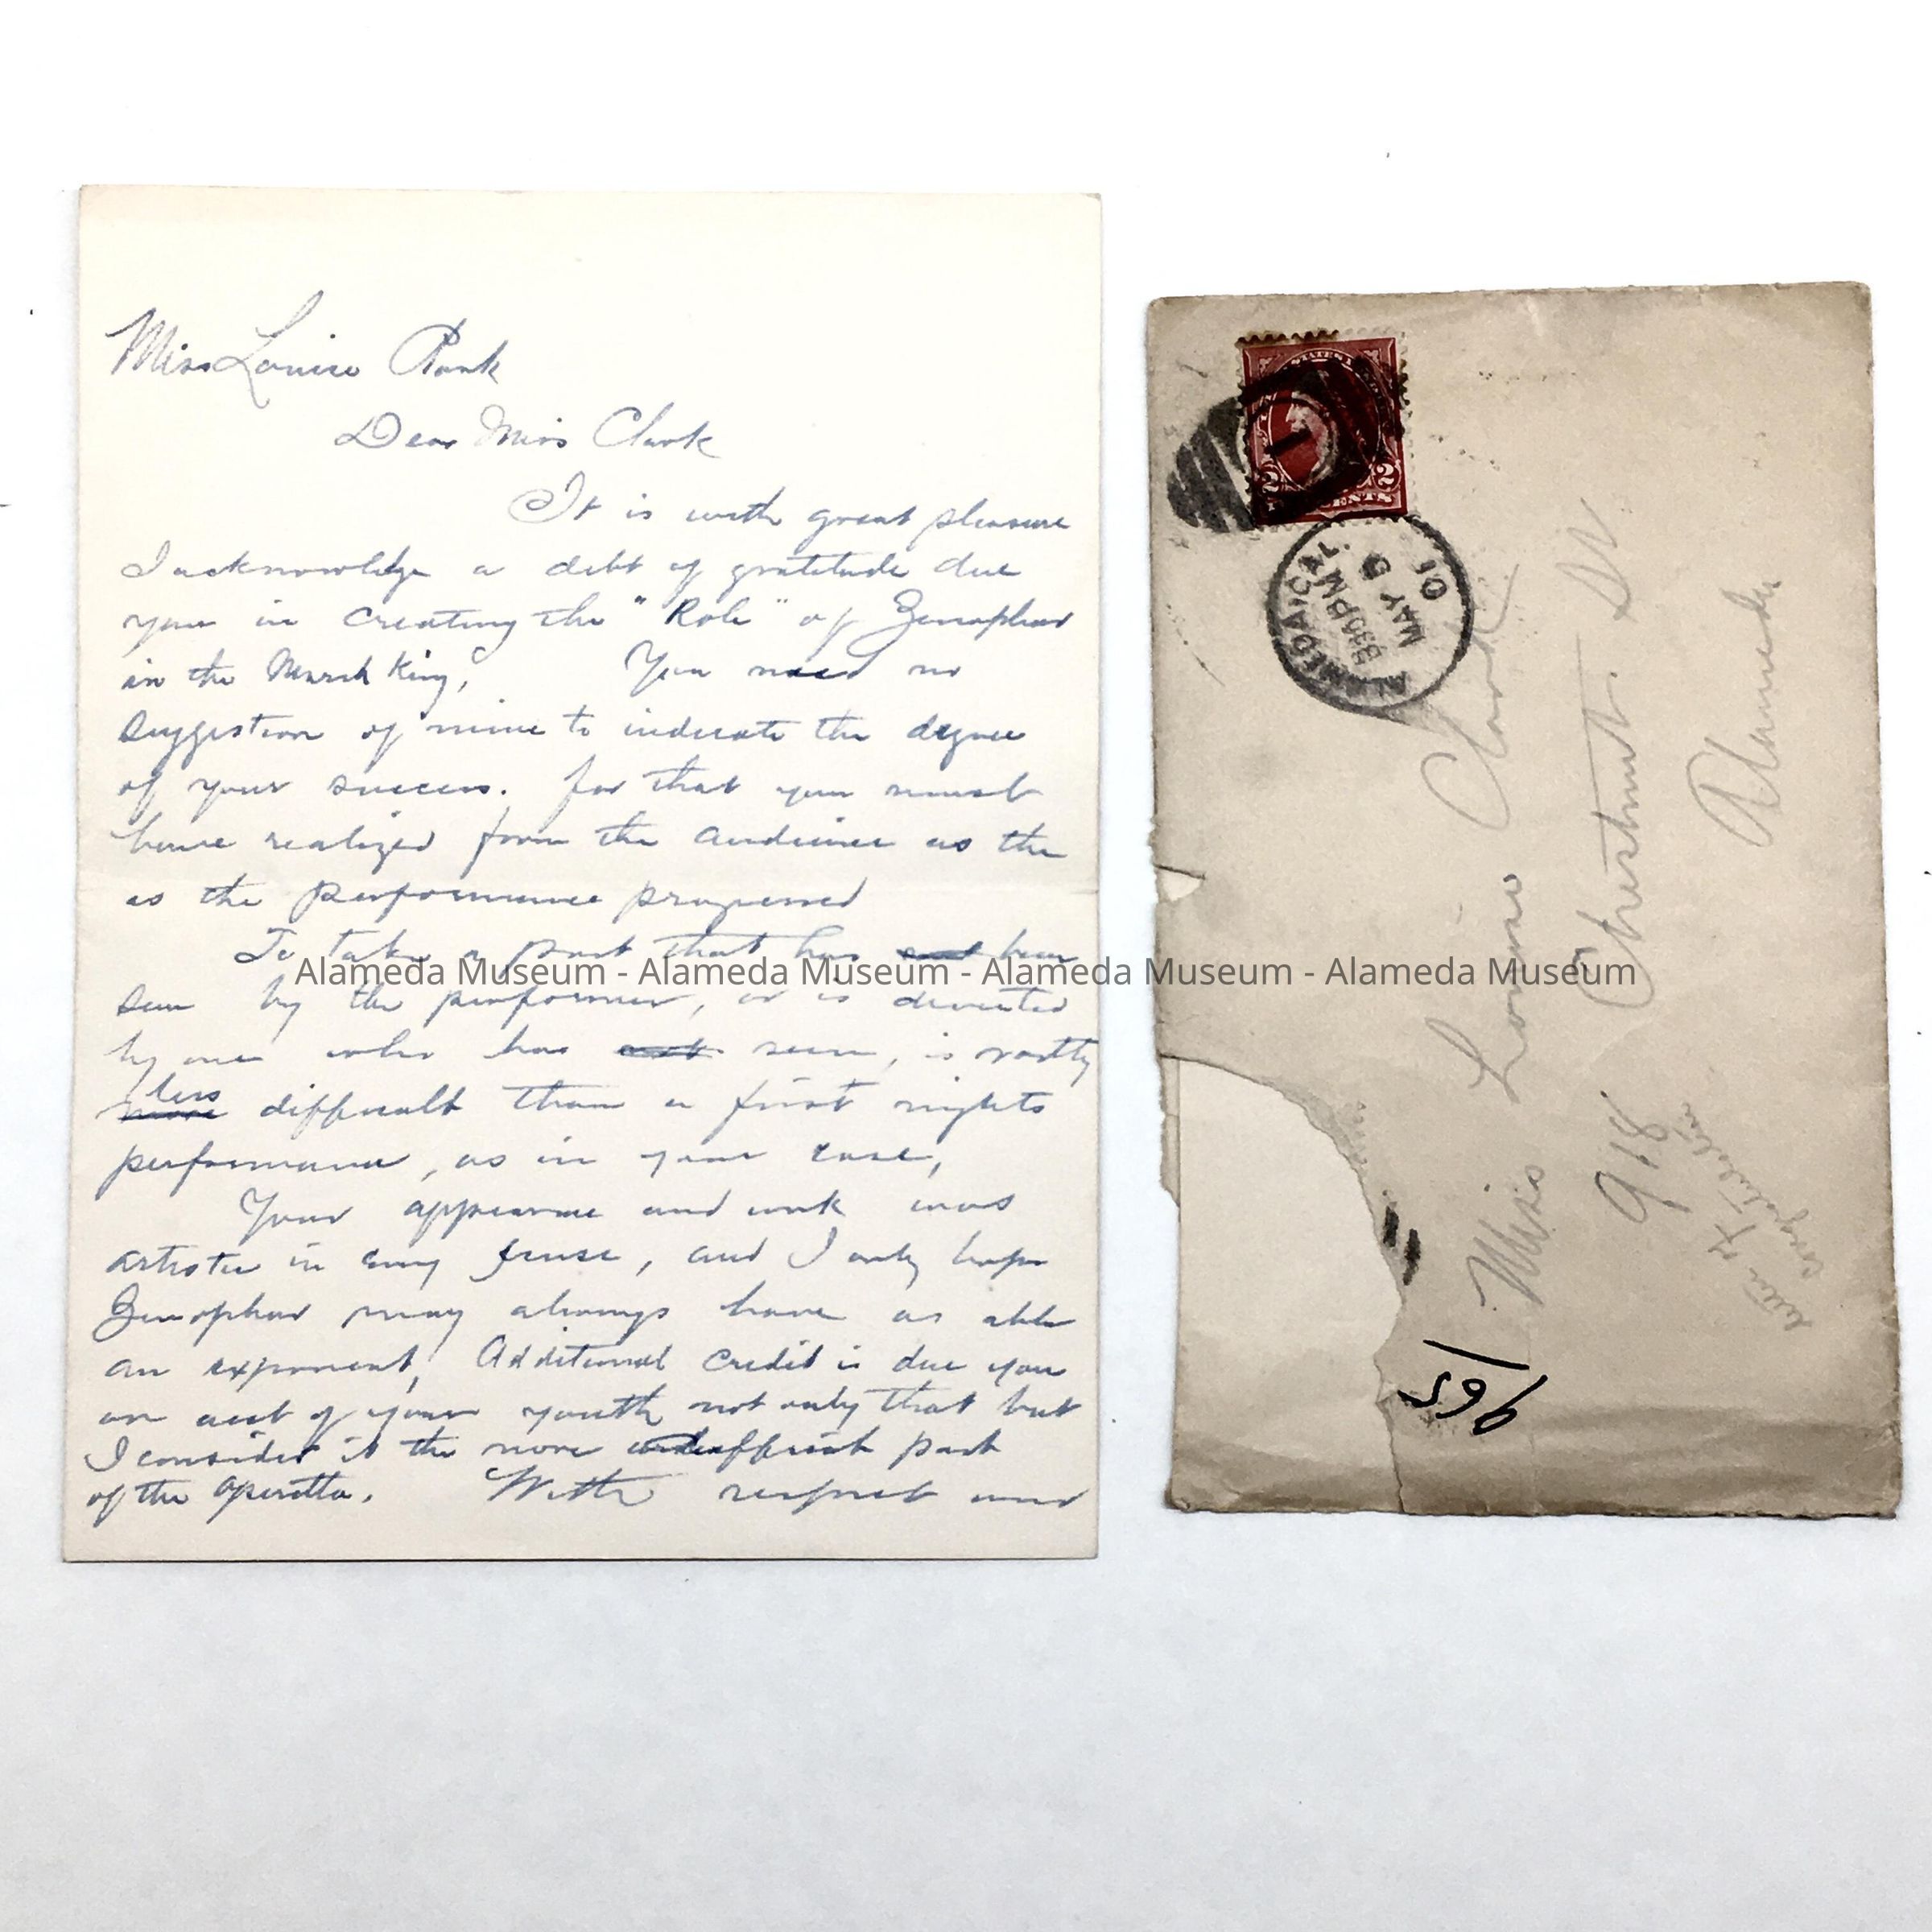 Miss Louise Clark
Dear Miss Clark
It is with great pleasure
I acknowledge a debt of gratitude due
you in creating the "Role" of Zenophar
in the March King, You need no
suggestion of mine to indicate the degree
of your success. for that you must
have realized from the audience as the
as the performance progressed
To take a part that has been
seen by the performer, or is directed
by one who has seen, is vastly
less
more difficult than a first nights
performance, as in your case,
Your appearance and work was
artistic in every sense, and I only hope
Zenophar may always have as able
an exponent, Additional credit is due you
on acct of your youth not only that but
I consider it the more difficult part
of the operetta. With respect and
Alameda Museum - Alameda Museum - Alameda Museum - Alameda Museum
STATES
2 2
CENTS
ALAMEDA, CAL.
830PM
MAY
01
Miss Louise Clark
918 Chestnut St
Alameda
letter of
congratulation